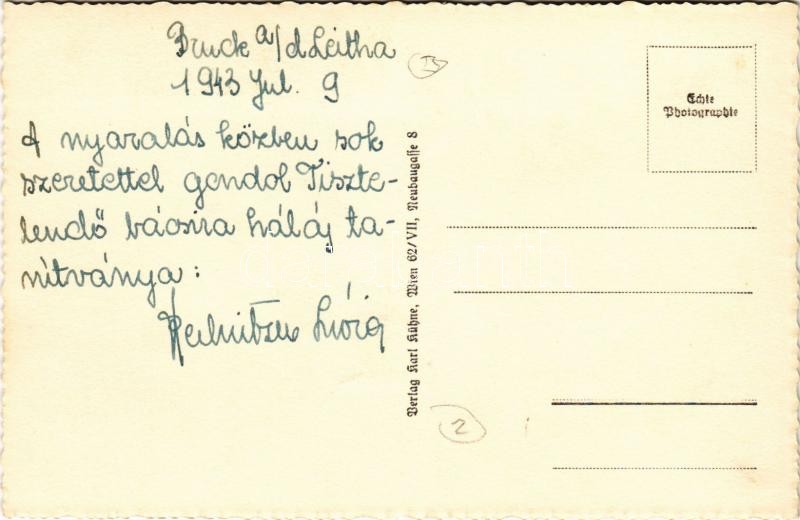 Bruck a/d Leitha
1943 Jul. 9
A nyaralás közben sok
szeretettel gondol Tiszte-
lendő bácsira hálás ta-
nítványa:
Lívia
Verlag Karl Kühne, Wien 62/VII, Neubaugasse 8
Echte
Photographie
2